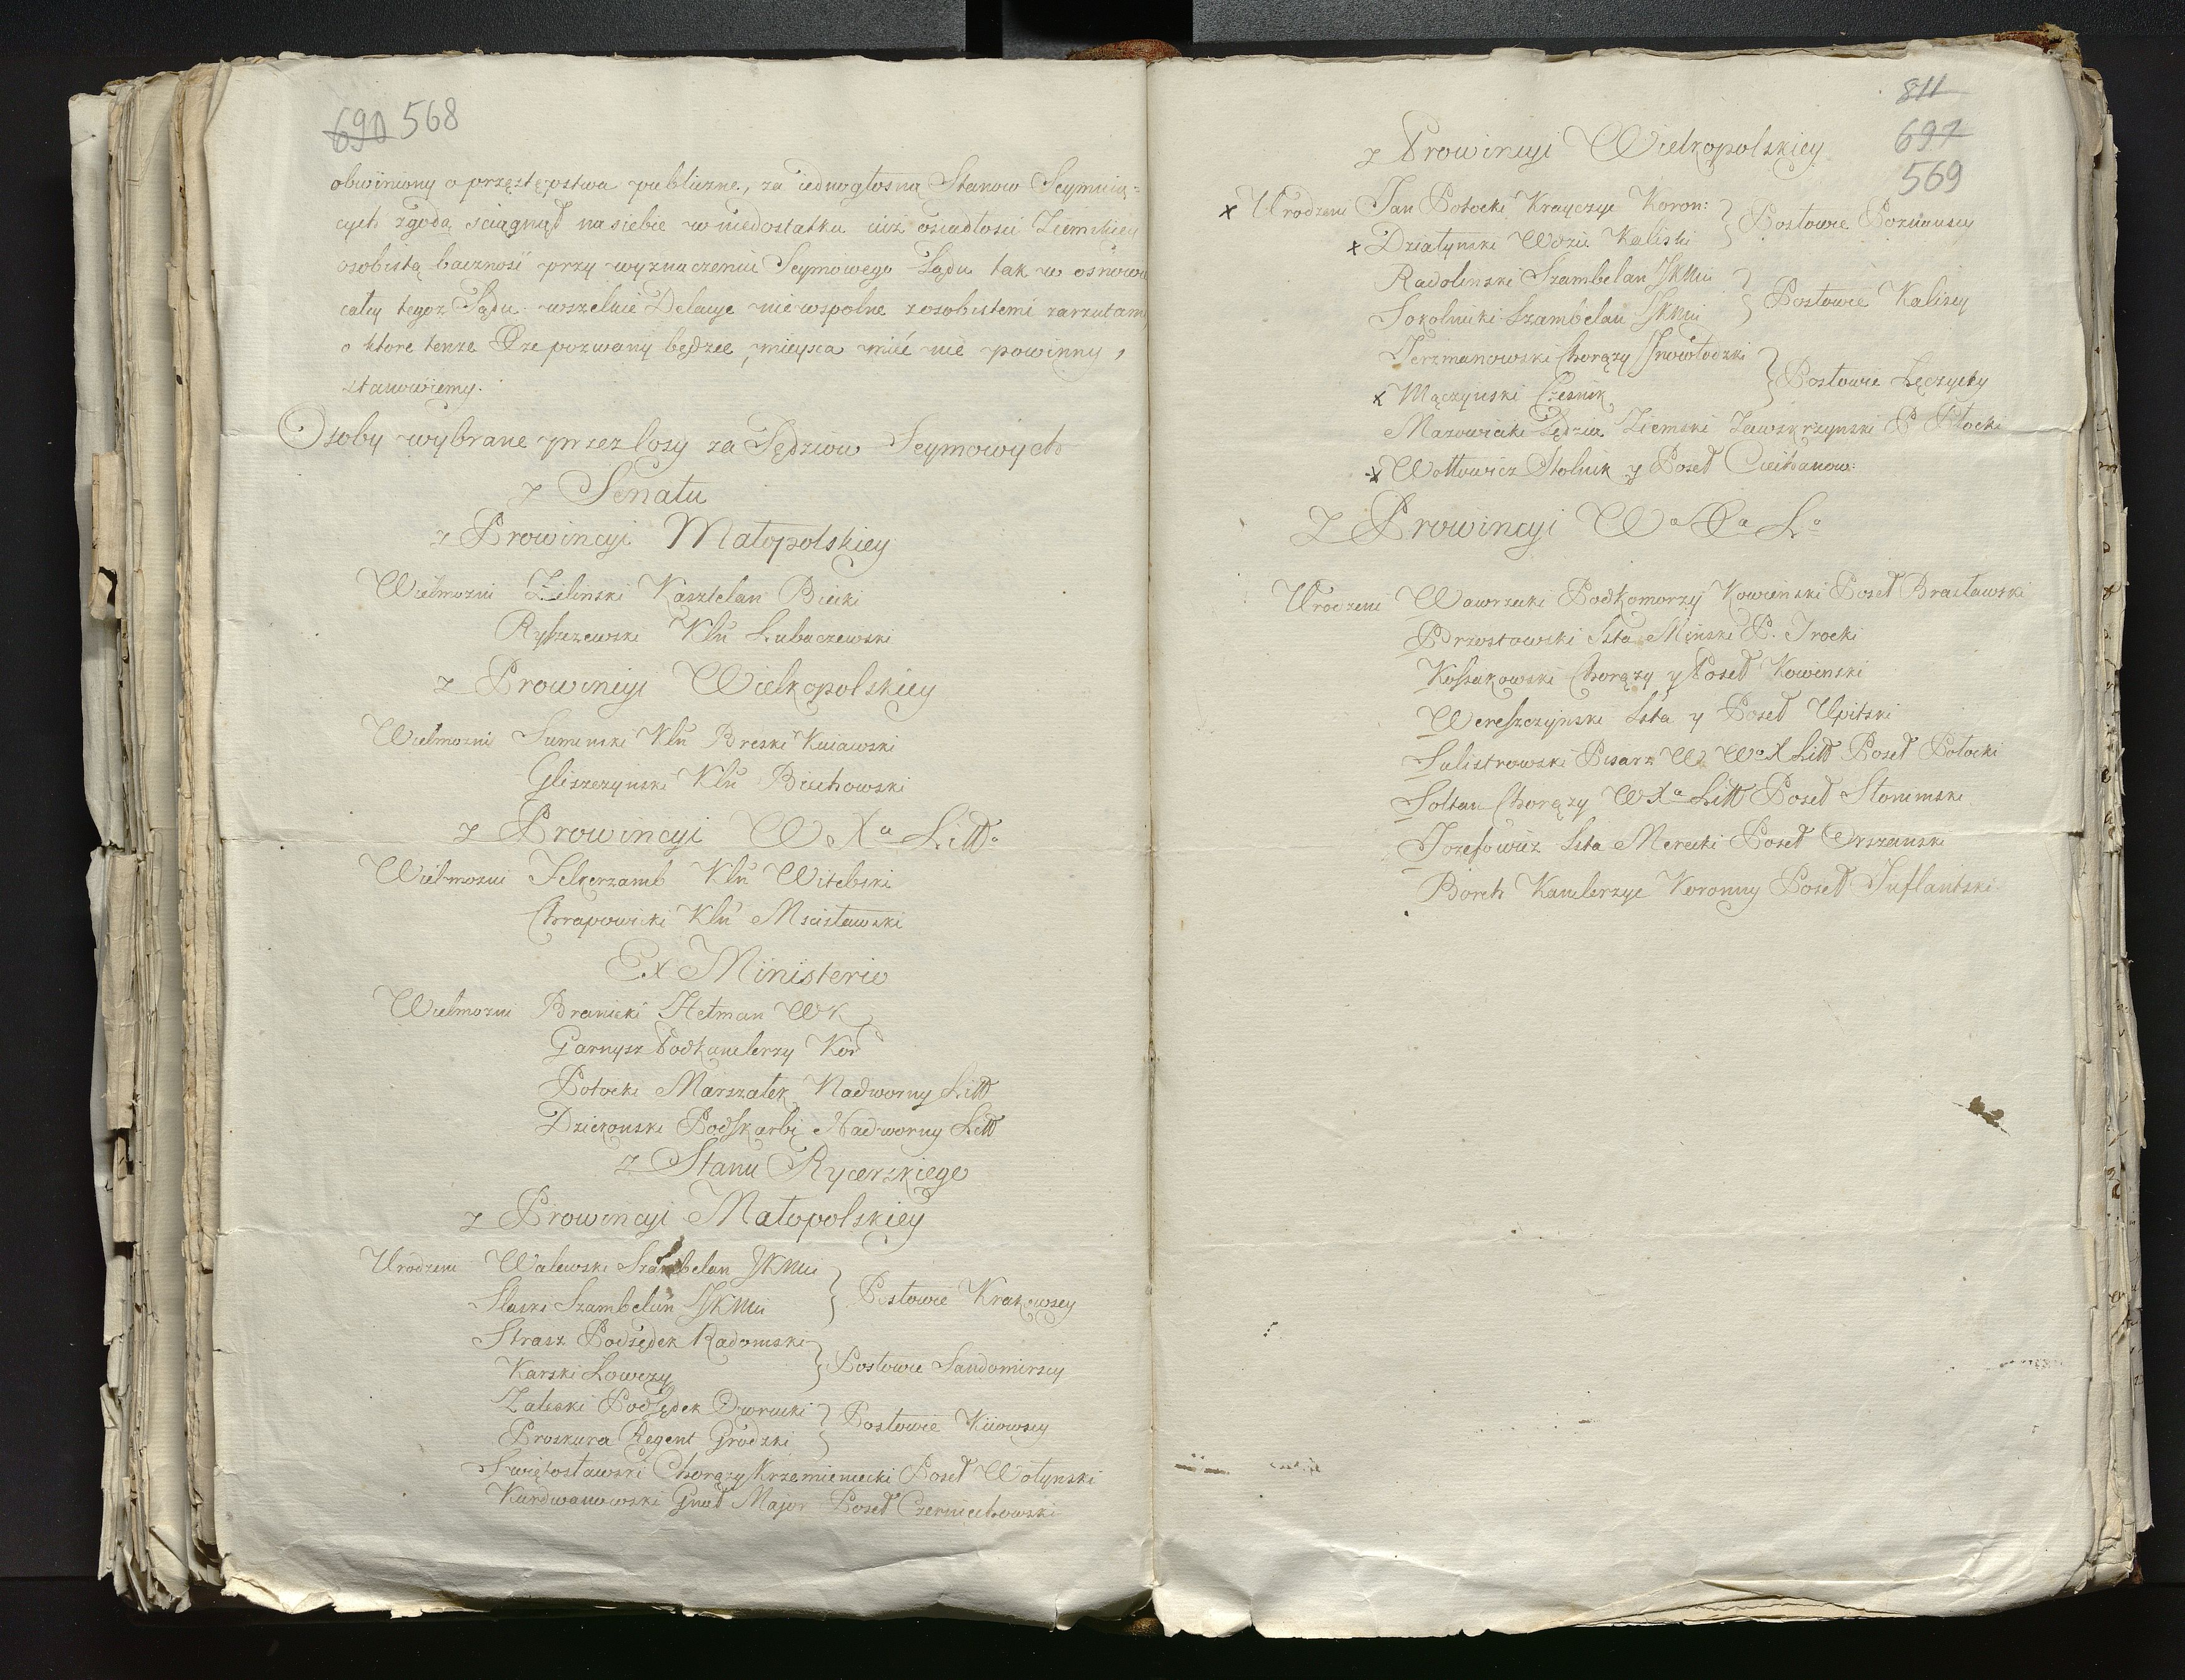 690 568
obwiniony o przęstępstwa publiczne, za iednogłosną Stanow Seymuią=
cych zgodą sciągnął na siebie w niedostatku iuż osiadłosci Ziemskiey
osobistą bacznosć przy wyznaczeniu Seymowego Sądu tak w osnowie
całey tegoz Sądu wszelkie Delacye niewspolne z osobistemi zarzutami
o ktore tenze Xze pozwany będzie, mieysca mieć nie powinny,
stanowiemy.
Osoby wybrane przez losy za Sędziow Seymowych
z Senatu
z Prowincyi Małopolskiey
Wielmozni Zelinski Kasztelan Biecki
Ryszczewski Kln Lubaczewski
z Prowincyi Wielkopolskiey
Wielmozni Suminski Kln Breski Kuiawski
Gliszczynski Kln Biechowski
z Prowincyi W Xa Litto
Wielmozni Felkerzamb Kln Witebski
Chrapowicki Kln Mscisławski
Ex Ministerio
Wielmozni Branicki Hetman WK
Garnysz Podkanclerzy Kor
Potocki Marszałek Nadworny Litt
Dziekonski Podskarbi Nadworny Litt
z Stanu Rycerskiego
z Prowincyi Małopolskiey
Urodzeni Walewski Szambelan JKMci
Slaski Szambelan JKMci } Posłowie Krakowscy
Strasz Podsędek Radomski
Karski Łowczy } Posłowie Sandomirscy
Zaleski Podsędek Owrucki
Proskura Regent Grodzki } Posłowie Kiiowscy
Swiętosławski Chorązy Krzemieniecki Poseł Wołynski
Kurdwanowski Gnał Major Poseł Czerniechowski
811
697
569
z Prowincyi Wielkopolskiey
x Urodzeni Jan Potocki Krayczyc Koron:
x Działynski Wdzic Kaliski } Posłowie Poznanscy
Radolinski Szambelan JKMci
Sokolnicki Szambelan JKMci } Posłowie Kaliscy
Jerzmanowski Chorązy Jnowłodzki
x Mączynski Czesnik } Posłowie Łęczyccy
Mazowiecki Sędzia Ziemski Zawskrzynski P Płocki
x Wołłowicz Stolnik y Poseł Ciechanow:
Z Prowincyi Wa Xa Lo
Urodzeni Wawrzecki Podkomorzy Kowienski Poseł Brasławski
Brzostowski Ssta Minski P. Trocki
Kossakowski Chorązy y Poseł Kowienski
Wereszczynski Ssta y Poseł Upitski
Sulistrowski Pisarz W WoX Litt Poseł Połocki
Sołtan Chorązy WXa Litt Poseł Słonimski
Jozefowicz Ssta Merecki Poseł Orszanski
Borch Kanclerzyc Koronny Poseł Inflantski